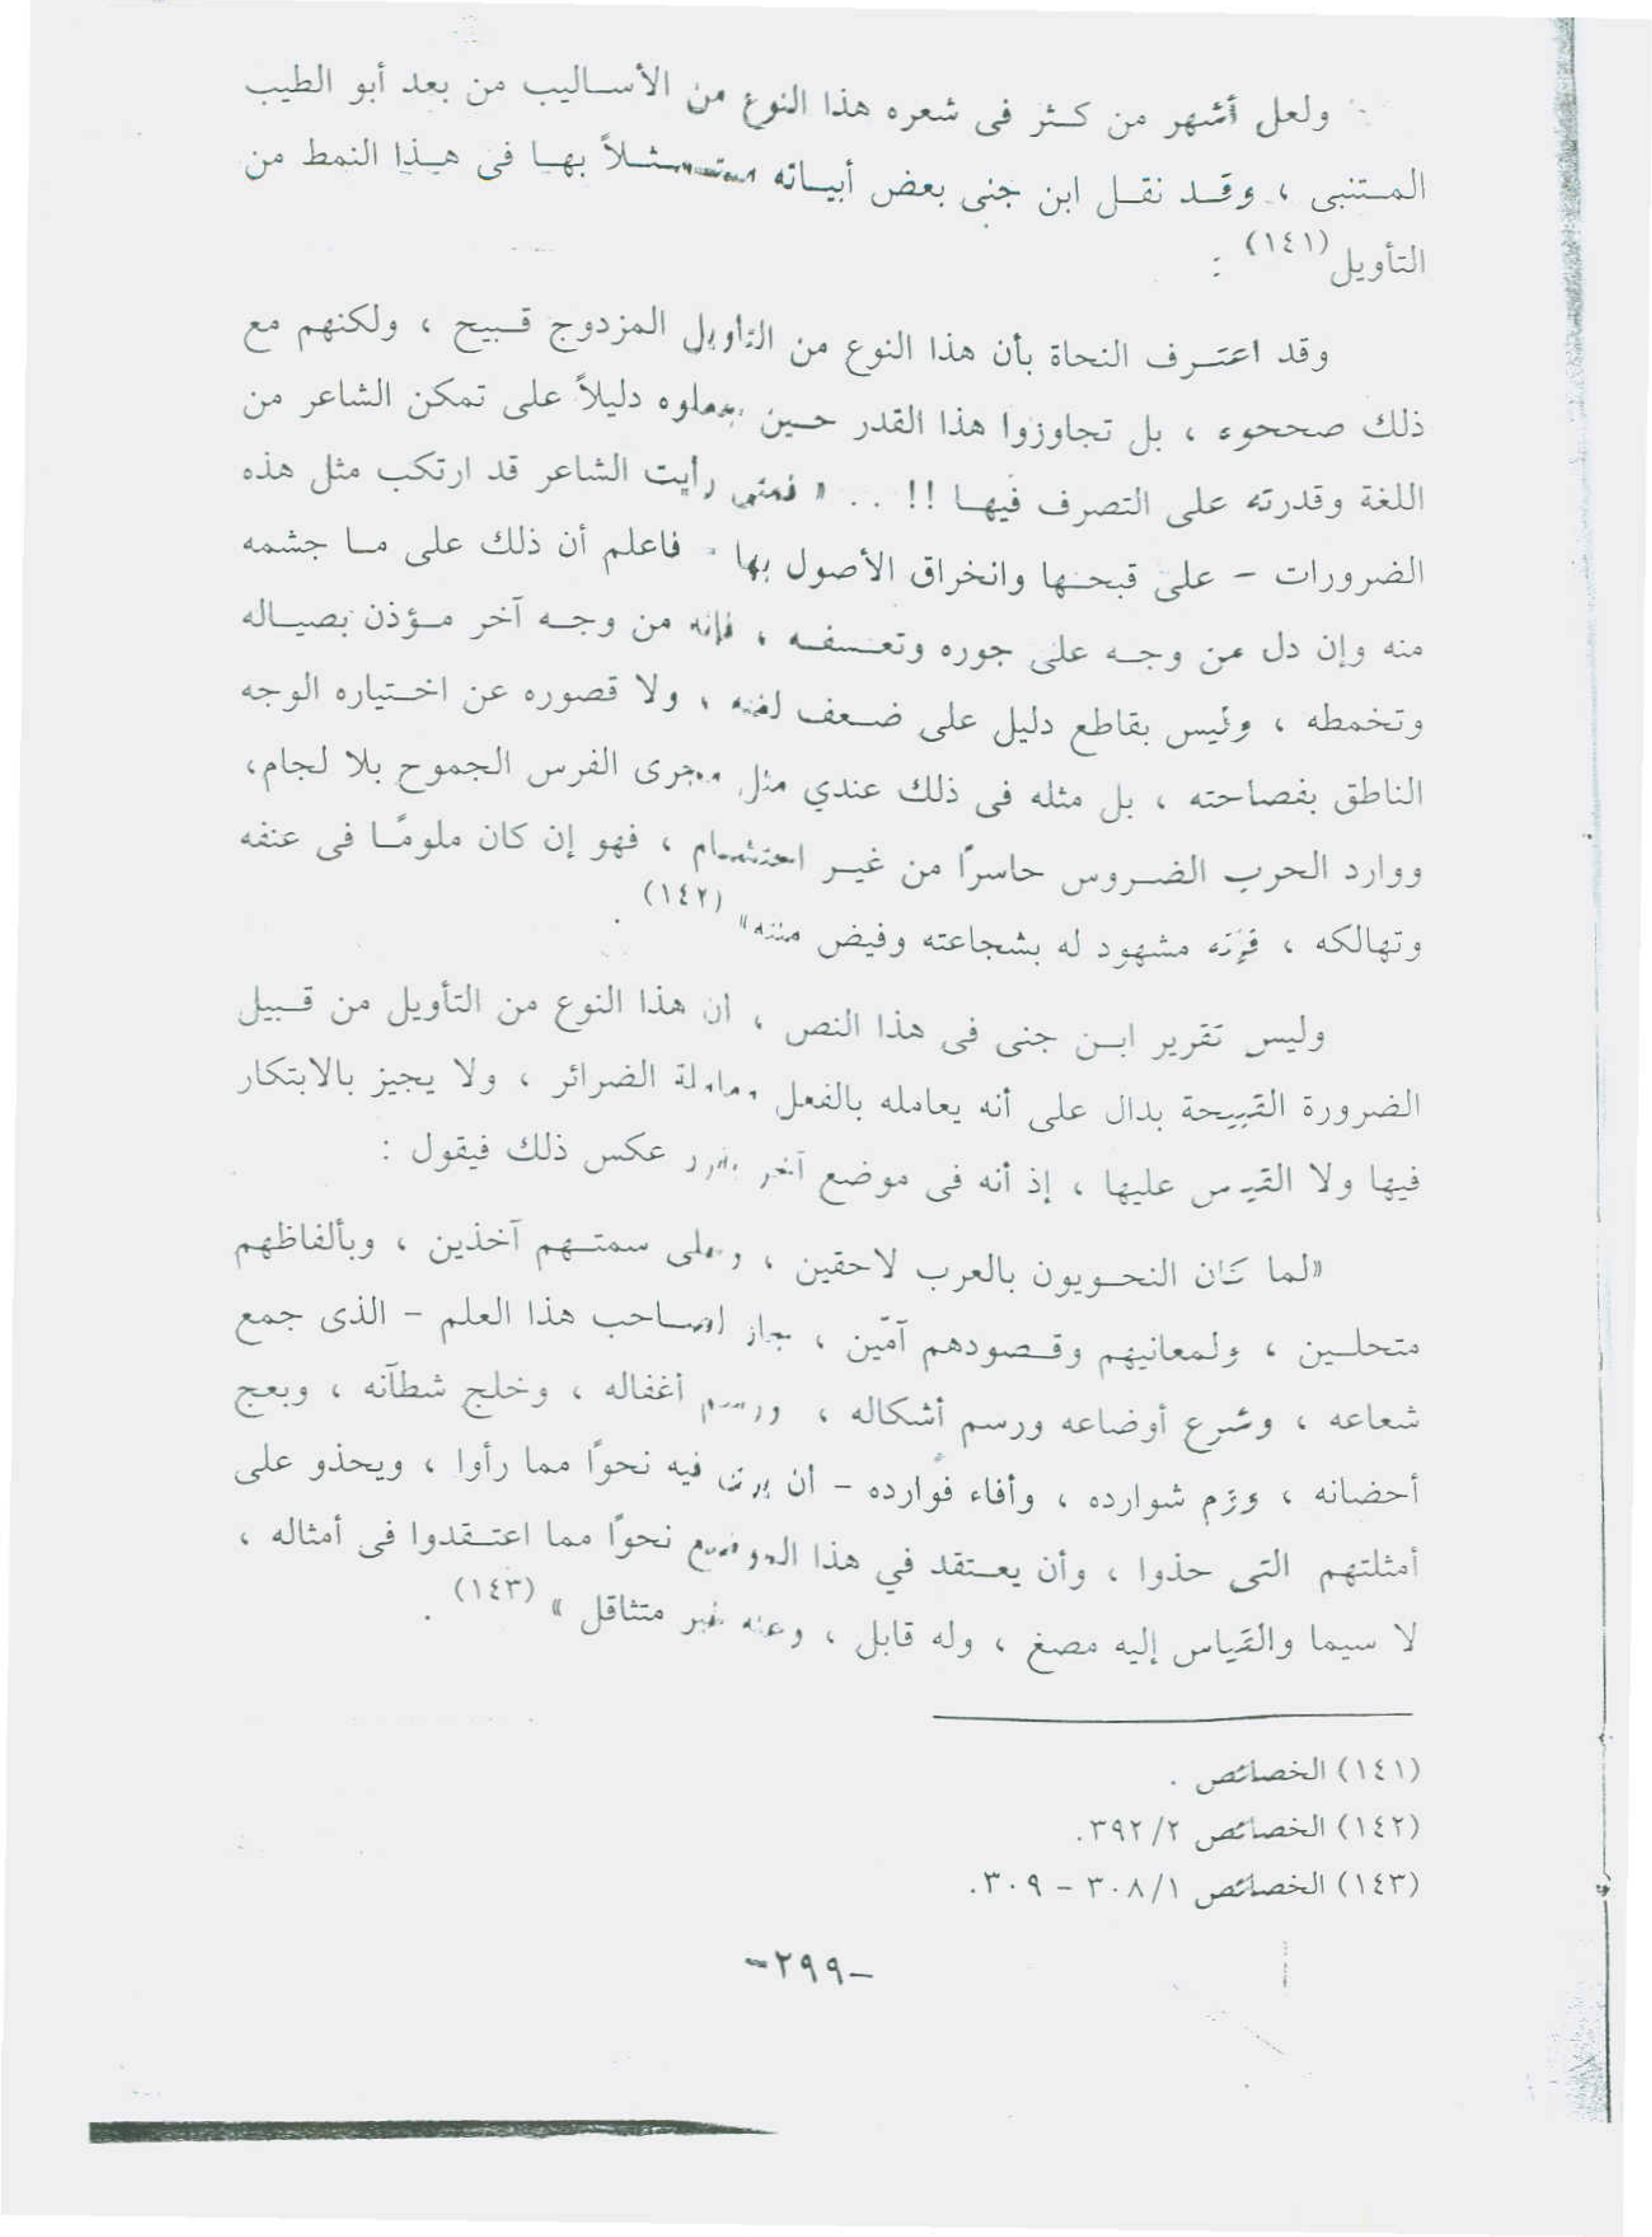 ولعل أشهر من كثر فى شعره هذا النوع من الأساليب من بعد أبو الطيب
المتنبى ، وقد نقل ابن جنى بعض أبياته متمثلاً بها فى هذا النمط من
التأويل (١٤١) :
وقد اعترف النحاة بأن هذا النوع من التأويل المزدوج قبيح ، ولكنهم مع
ذلك صححوه ، بل تجاوزوا هذا القدر حين جعلوه دليلاً على تمكن الشاعر من
اللغة وقدرته على التصرف فيها !! .. « فمتى رأيت الشاعر قد ارتكب مثل هذه
الضرورات – على قبحها وانخراق الأصول بها - فاعلم أن ذلك على ما جشمه
منه وإن دل من وجه على جوره وتعسفه ، فإنه من وجه آخر مؤذن بصياله
وتخمطه ، وليس بقاطع دليل على ضعف لغته ، ولا قصوره عن اختياره الوجه
الناطق بفصاحته ، بل مثله فى ذلك عندي مثل مجرى الفرس الجموح بلا لجام،
ووارد الحرب الضروس حاسرًا من غير احتشام ، فهو إن كان ملومًا فى عنفه
وتهالكه ، فإنه مشهود له بشجاعته وفيض منته» (١٤٢) .
وليس تقرير ابن جنى فى هذا النص ، ان هذا النوع من التأويل من قبيل
الضرورة القبيحة بدال على أنه يعامله بالفعل معاملة الضرائر ، ولا يجيز بالابتكار
فيها ولا القياس عليها ، إذ أنه فى موضع آخر يقرر عكس ذلك فيقول :
«لما كان النحويون بالعرب لاحقين ، وعلى سمتهم آخذين ، وبألفاظهم
متحلين ، ولمعانيهم وقصودهم آمّين ، جاز لصاحب هذا العلم – الذى جمع
شعاعه ، وشرع أوضاعه ورسم أشكاله ، ووسم أغفاله ، وخلج شطآنه ، وبعج
أحضانه ، وزم شوارده ، وأفاء فوارده – أن يرى فيه نحوًا مما رأوا ، ويحذو على
أمثلتهم التى حذوا ، وأن يعتقد في هذا الموضع نحوًا مما اعتقدوا فى أمثاله ،
لا سيما والقياس إليه مصغ ، وله قابل ، وعنه غير متثاقل » (١٤٣) .
(١٤١) الخصائص .
(١٤٢) الخصائص ٣٩٢/٢.
(١٤٣) الخصائص ٣٠٨/١ – ٣٠٩.
-٢٩٩-